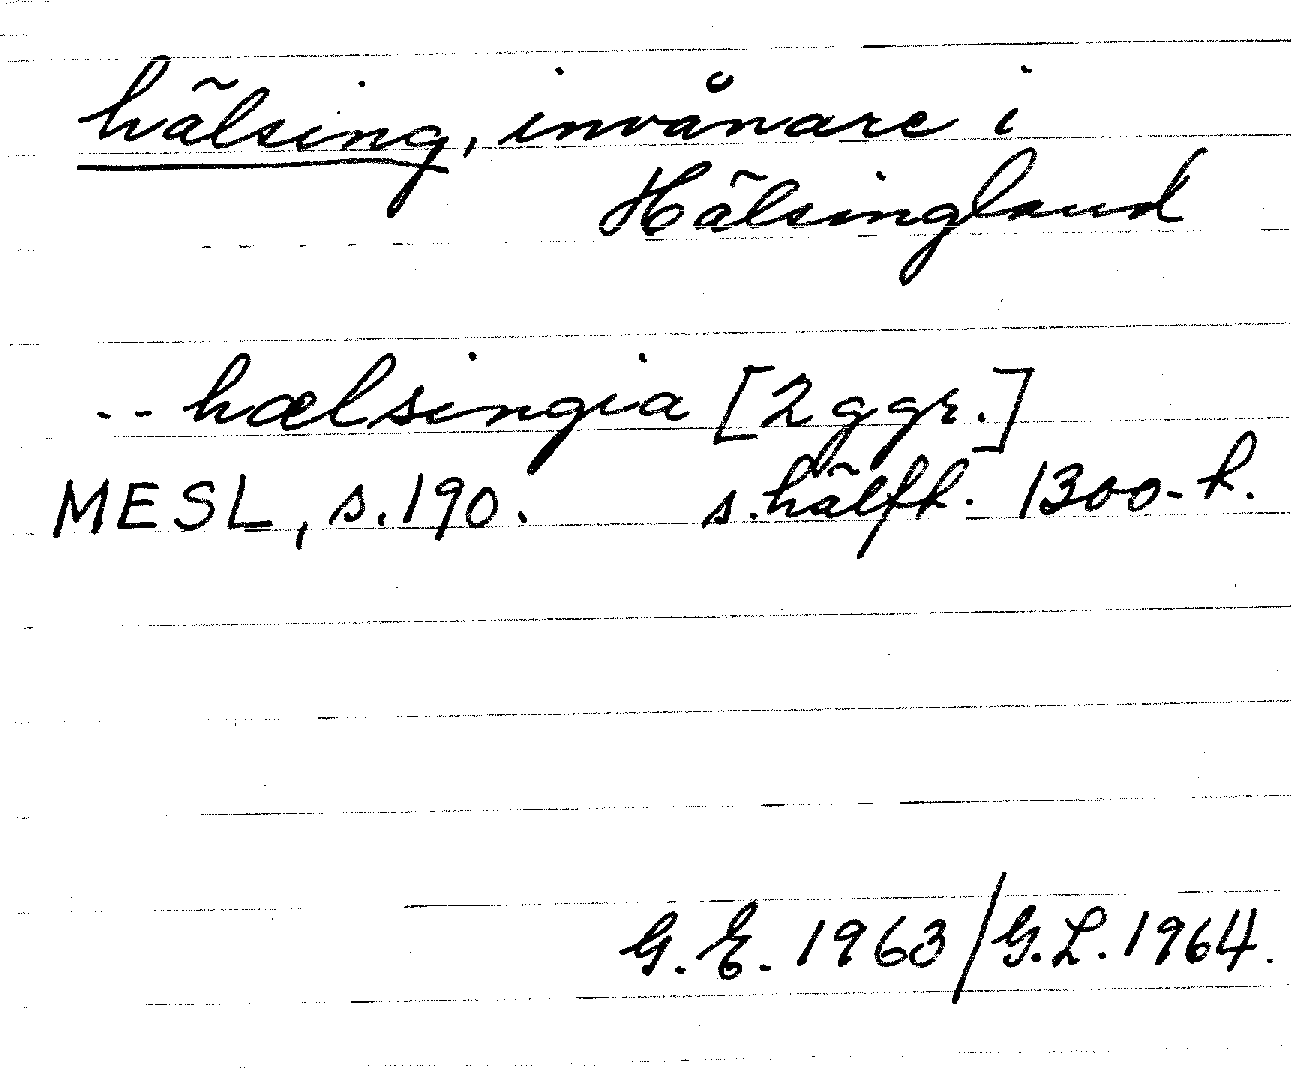 hälsing, invånare i
Hälsingland
-- hælsingia [2 ggr.]
MESL, s. 190. s. hälft. 1300-t.
G. E. 1963/G. L. 1964.